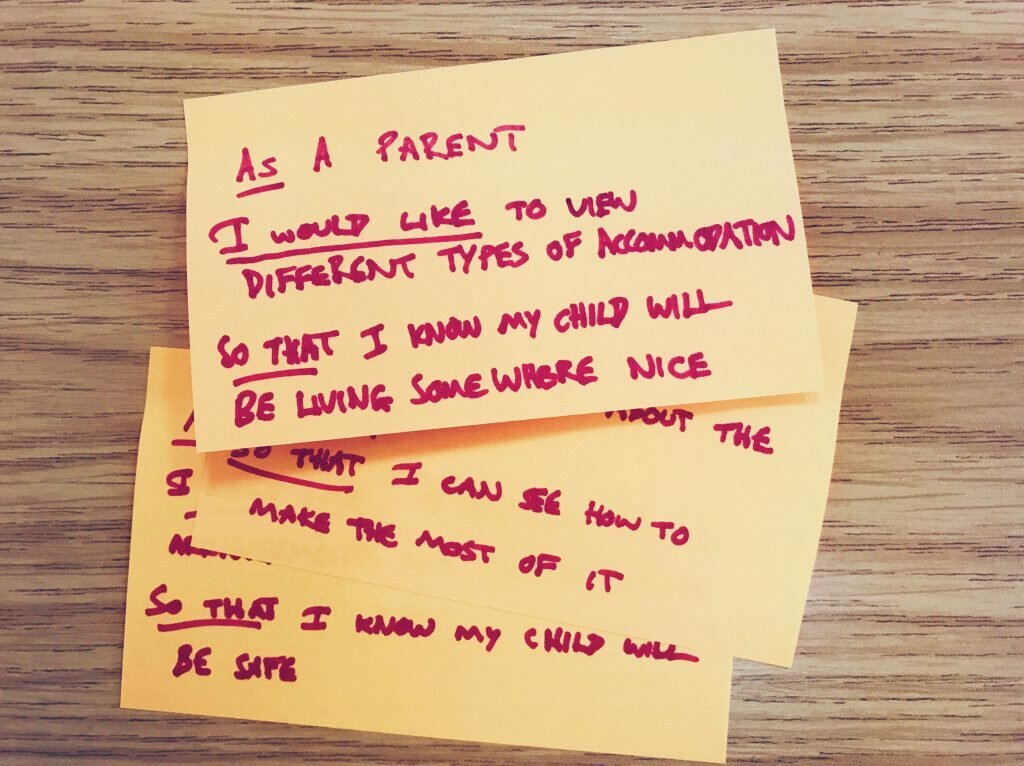 AS A PARENT
I WOULD LIKE TO VIEW
DIFFERENT TYPES OF ACCOMMODATION
SO THAT I KNOW MY CHILD WILL
BE LIVING SOMEWHERE NICE
ABOUT THE
SO THAT I CAN SEE HOW TO
MAKE THE MOST OF IT
I
SO THAT I KNOW MY CHILD WILL
BE SAFE